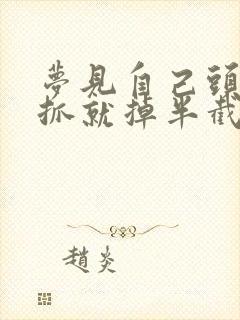 夢見自己頭
抓就掉半截
趙炎